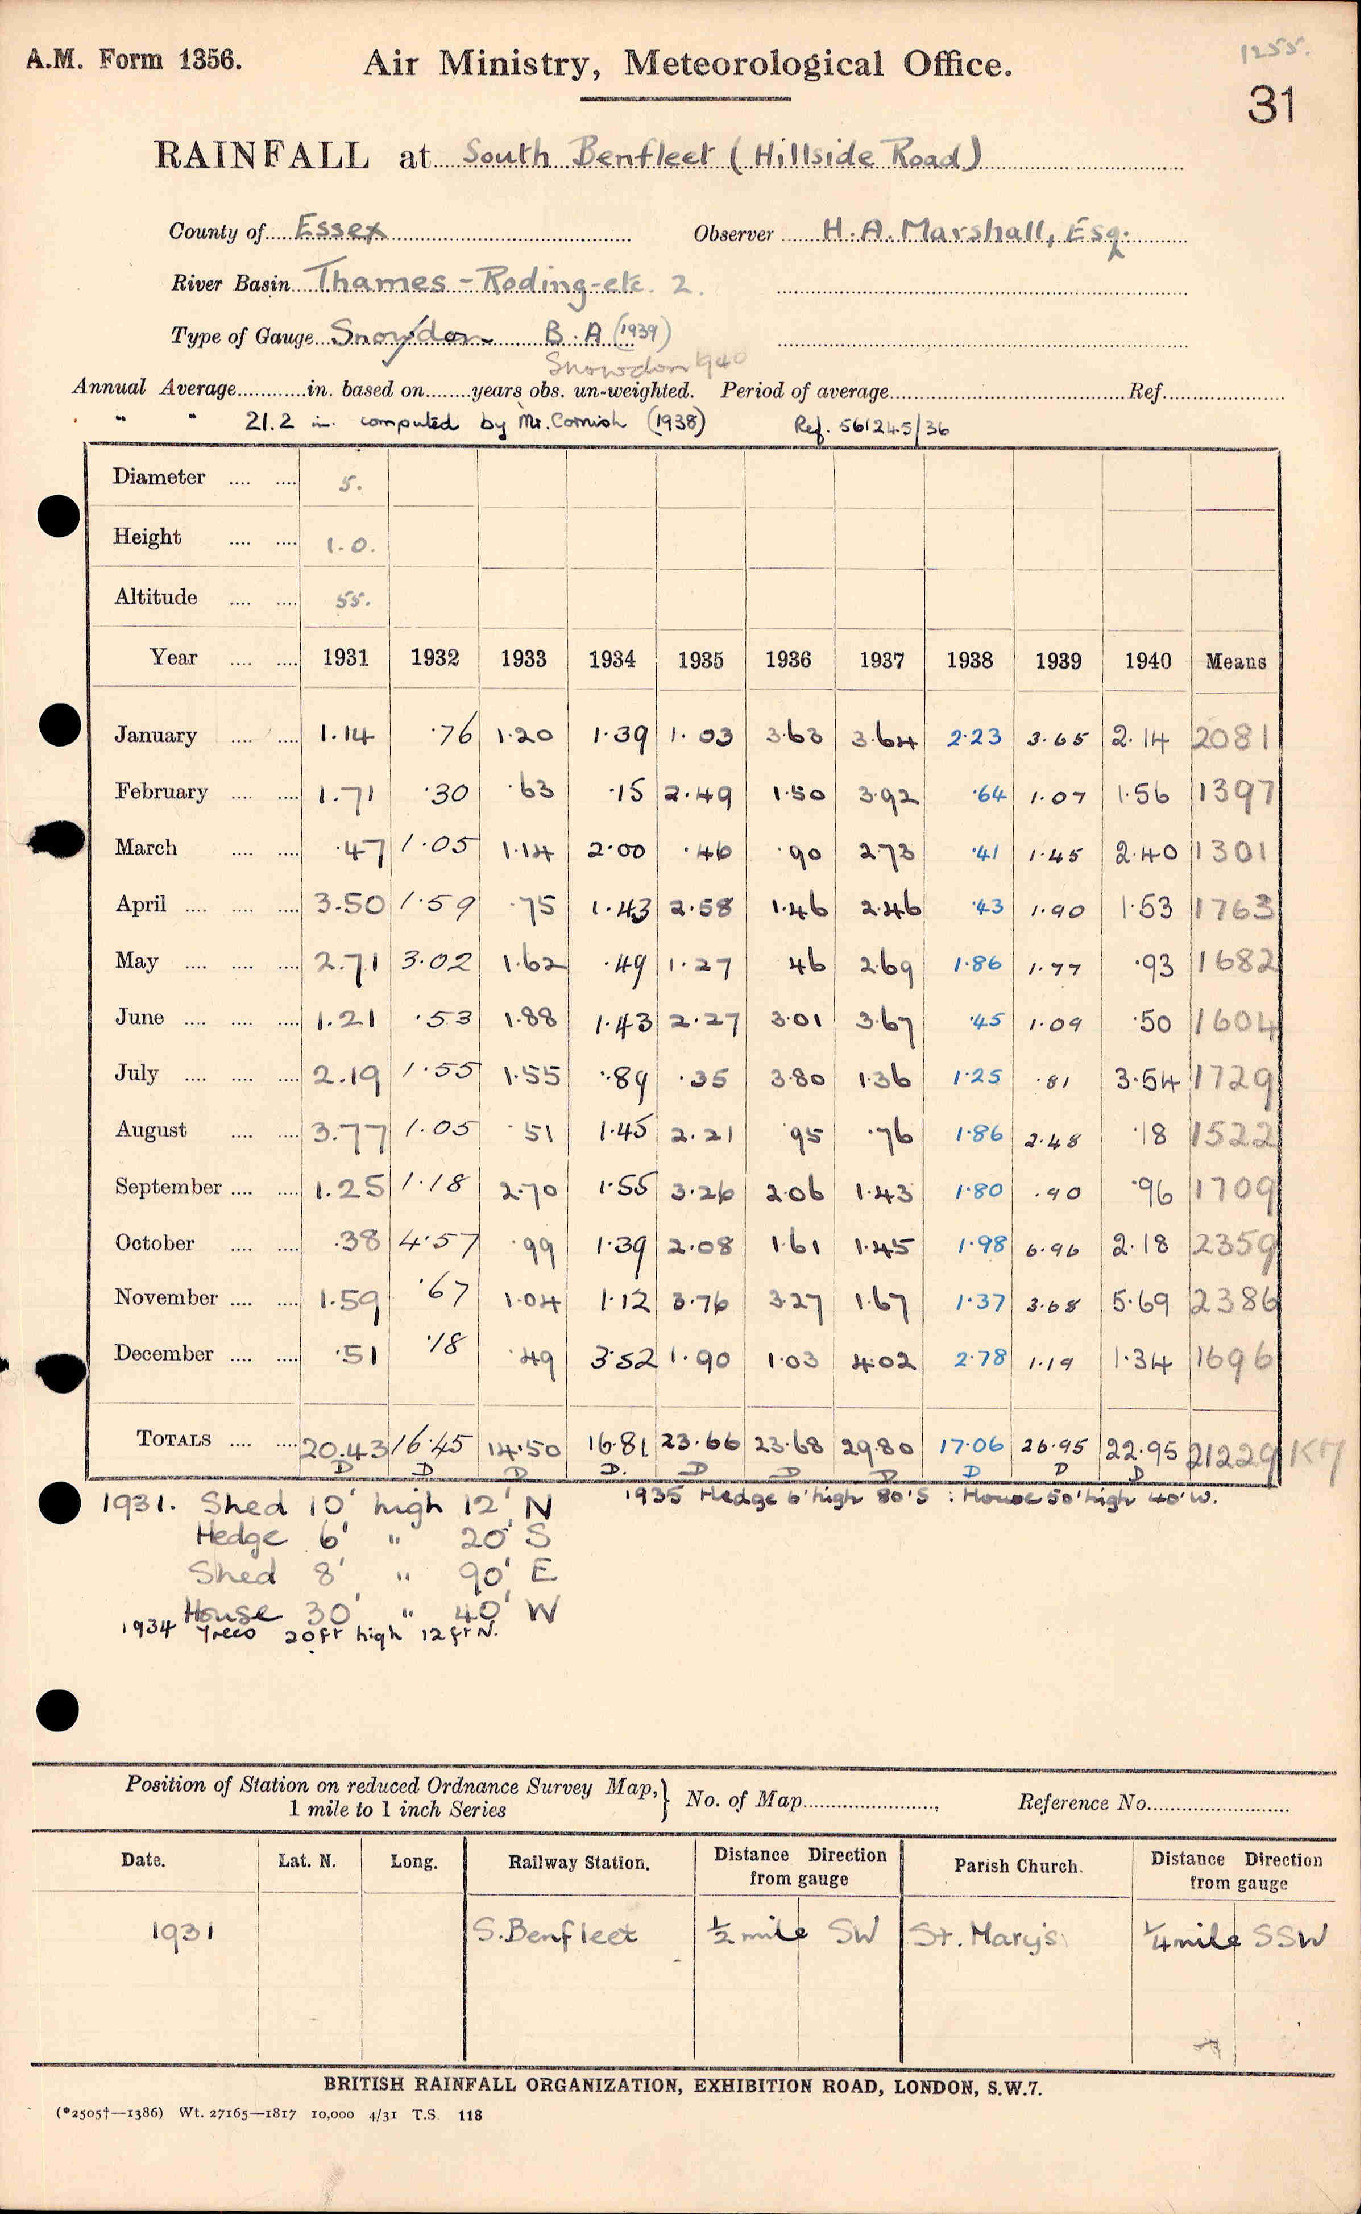 1255.
A.M. Form 1356. Air Ministry, Meteorological Office.
31
RAINFALL at South Benfleet (Hillside Road)
County of Essex Observer H.A. Marshall, Esq.
River Basin Thames - Roding-etc. 2.
Type of Gauge Snowdon B.A (1939)
Snowdon 1940
Annual Average............in. based on........years obs. un-weighted. Period of average............Ref............
" " 21.2 in. computed by Mr. Cornish (1938) Ref. 561245/36
Diameter .... .... 5.
Height .... .... 1.0.
Altitude .... .... 55.
Year .... .... 1931 1932 1933 1934 1935 1936 1937 1938 1939 1940 Means
January .... .... 1.14 .76 1.20 1.39 1.03 3.63 3.64 2.23 3.65 2.14 2081
February .... .... 1.71 .30 .63 .15 2.49 1.50 3.92 .64 1.07 1.56 1397
March .... .... .47 1.05 1.14 2.00 .46 .90 2.73 .41 1.45 2.40 1301
April .... .... .... 3.50 1.59 .75 1.43 2.58 1.46 2.46 .43 1.90 1.53 1763
May .... .... .... 2.71 3.02 1.62 .49 1.27 46 2.69 1.86 1.77 .93 1682
June .... .... .... 1.21 .53 1.88 1.43 2.27 3.01 3.67 .45 1.09 .50 1604
July .... .... .... 2.19 1.55 1.55 .89 .35 3.80 1.36 1.25 .81 3.54 1729
August .... .... 3.77 1.05 .51 1.45 2.21 .95 .76 1.86 2.48 .18 1522
September .... .... 1.25 1.18 2.70 1.55 3.26 2.06 1.43 1.80 .90 .96 1709
October .... .... .38 4.57 .99 1.39 2.08 1.61 1.45 1.98 6.96 2.18 2359
November .... .... 1.59 .67 1.04 1.12 3.76 3.27 1.67 1.37 3.68 5.69 2386
December .... .... .51 .18 .49 3.52 1.90 1.03 4.02 2.78 1.19 1.34 1696
TOTALS .... .... 20.43 16.45 14.50 16.81 23.66 23.68 29.80 17.06 26.95 22.95 21229
D D D D. D D D D D D
1931. Shed 10' high 12' N 1935 Hedge 6' high 80' S : House 50' high 40' W.
Hedge 6' " 20' S
Shed 8' " 90' E
House 30' " 40' W
1934 Trees 20ft high 12ft N.
Position of Station on reduced Ordnance Survey Map,} No. of Map............, Reference No............
1 mile to 1 inch Series
Date. Lat. N. Long. Railway Station. Distance Direction from gauge Parish Church. Distance Direction from gauge
1931 S. Benfleet 1/2 mile SW St. Mary's 1/4 mile SSW
BRITISH RAINFALL ORGANIZATION, EXHIBITION ROAD, LONDON, S.W.7.
(*2505†—1386) Wt. 27165—1817 10,000 4/31 T.S. 118